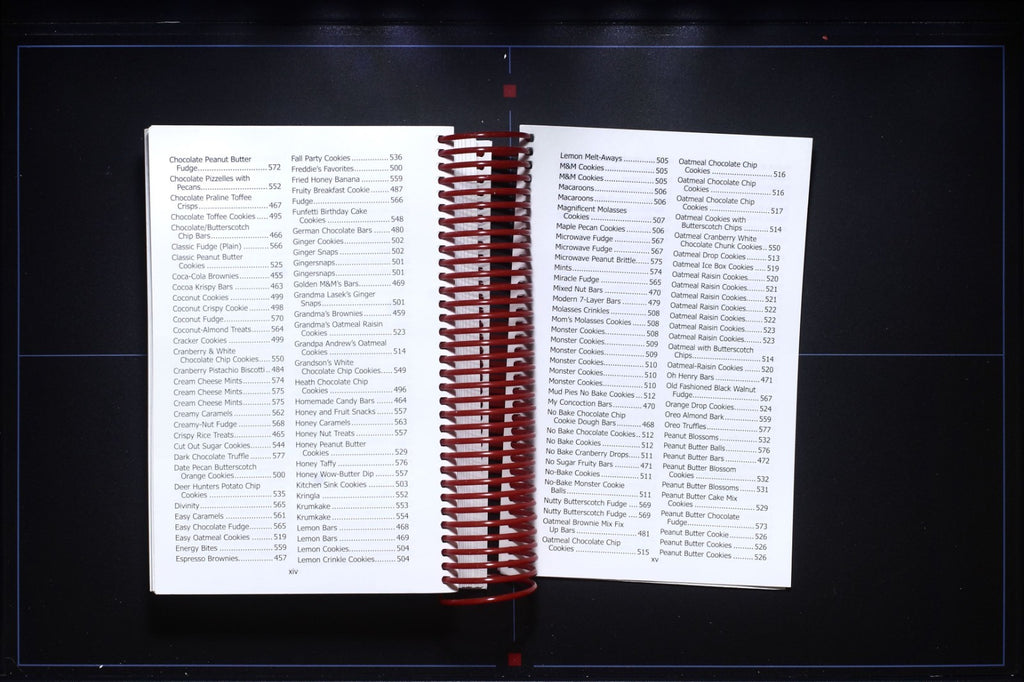 Chocolate Peanut Butter
Fudge..................572
Chocolate Pizzelles with
Pecans..................552
Chocolate Praline Toffee
Crisps..................467
Chocolate Toffee Cookies.....495
Chocolate/Butterscotch
Chip Bars..................466
Classic Fudge (Plain)...........566
Classic Peanut Butter
Cookies..................525
Coca-Cola Brownies............455
Cocoa Krispy Bars..............463
Coconut Cookies................499
Coconut Crispy Cookie........498
Coconut Fudge..................570
Coconut-Almond Treats.......564
Cracker Cookies.................499
Cranberry & White
Chocolate Chip Cookies.....550
Cranberry Pistachio Biscotti..484
Cream Cheese Mints...........574
Cream Cheese Mints...........575
Cream Cheese Mints...........575
Creamy Caramels...............562
Creamy-Nut Fudge.............568
Crispy Rice Treats..............465
Cut Out Sugar Cookies........544
Dark Chocolate Truffle........577
Date Pecan Butterscotch
Orange Cookies...............500
Deer Hunters Potato Chip
Cookies..................535
Divinity..................565
Easy Caramels..................561
Easy Chocolate Fudge.........565
Easy Oatmeal Cookies.........519
Energy Bites..................559
Espresso Brownies..............457
Fall Party Cookies...............536
Freddie's Favorites..............500
Fried Honey Banana............559
Fruity Breakfast Cookie........487
Fudge..................566
Funfetti Birthday Cake
Cookies..................548
German Chocolate Bars.......480
Ginger Cookies..................502
Ginger Snaps..................502
Gingersnaps..................501
Gingersnaps..................501
Golden M&M's Bars.............469
Grandma Lasek's Ginger
Snaps..................501
Grandma's Brownies............459
Grandma's Oatmeal Raisin
Cookies..................523
Grandpa Andrew's Oatmeal
Cookies..................514
Grandson's White
Chocolate Chip Cookies.....549
Heath Chocolate Chip
Cookies..................496
Homemade Candy Bars........464
Honey and Fruit Snacks.......557
Honey Caramels................563
Honey Nut Treats...............557
Honey Peanut Butter
Cookies..................529
Honey Taffy..................576
Honey Wow-Butter Dip.......557
Kitchen Sink Cookies...........503
Kringla..................552
Krumkake..................553
Krumkake..................554
Lemon Bars..................468
Lemon Bars..................469
Lemon Cookies..................504
Lemon Crinkle Cookies........504
xiv
Lemon Melt-Aways..............505
M&M Cookies..................505
M&M Cookies..................505
Macaroons..................506
Macaroons..................506
Magnificent Molasses
Cookies..................507
Maple Pecan Cookies..........506
Microwave Fudge...............567
Microwave Fudge...............567
Microwave Peanut Brittle......575
Mints..................574
Miracle Fudge..................565
Mixed Nut Bars..................470
Modern 7-Layer Bars...........479
Molasses Crinkles...............508
Mom's Molasses Cookies......508
Monster Cookies................508
Monster Cookies................509
Monster Cookies................509
Monster Cookies................510
Monster Cookies................510
Monster Cookies................510
Mud Pies No Bake Cookies...512
My Concoction Bars............470
No Bake Chocolate Chip
Cookie Dough Bars............468
No Bake Chocolate Cookies..512
No Bake Cookies................512
No Bake Cranberry Drops.....511
No Sugar Fruity Bars...........471
No-Bake Cookies................511
No-Bake Monster Cookie
Balls..................511
Nutty Butterscotch Fudge....569
Nutty Butterscotch Fudge....569
Oatmeal Brownie Mix Fix
Up Bars..................481
Oatmeal Chocolate Chip
Cookies..................515
Oatmeal Chocolate Chip
Cookies..................516
Oatmeal Chocolate Chip
Cookies..................516
Oatmeal Chocolate Chip
Cookies..................517
Oatmeal Cookies with
Butterscotch Chips............514
Oatmeal Cranberry White
Chocolate Chunk Cookies..550
Oatmeal Drop Cookies.........513
Oatmeal Ice Box Cookies.....519
Oatmeal Raisin Cookies........520
Oatmeal Raisin Cookies........521
Oatmeal Raisin Cookies........521
Oatmeal Raisin Cookies........522
Oatmeal Raisin Cookies........522
Oatmeal Raisin Cookies........523
Oatmeal Raisin Cookies........523
Oatmeal with Butterscotch
Chips..................514
Oatmeal-Raisin Cookies.......520
Oh Henry Bars..................471
Old Fashioned Black Walnut
Fudge..................567
Orange Drop Cookies..........524
Oreo Almond Bark..............559
Oreo Truffles..................577
Peanut Blossoms................532
Peanut Butter Balls.............576
Peanut Butter Bars.............472
Peanut Butter Blossom
Cookies..................532
Peanut Butter Blossoms.......531
Peanut Butter Cake Mix
Cookies..................529
Peanut Butter Chocolate
Fudge..................573
Peanut Butter Cookie..........526
Peanut Butter Cookies.........526
Peanut Butter Cookies.........526
xv